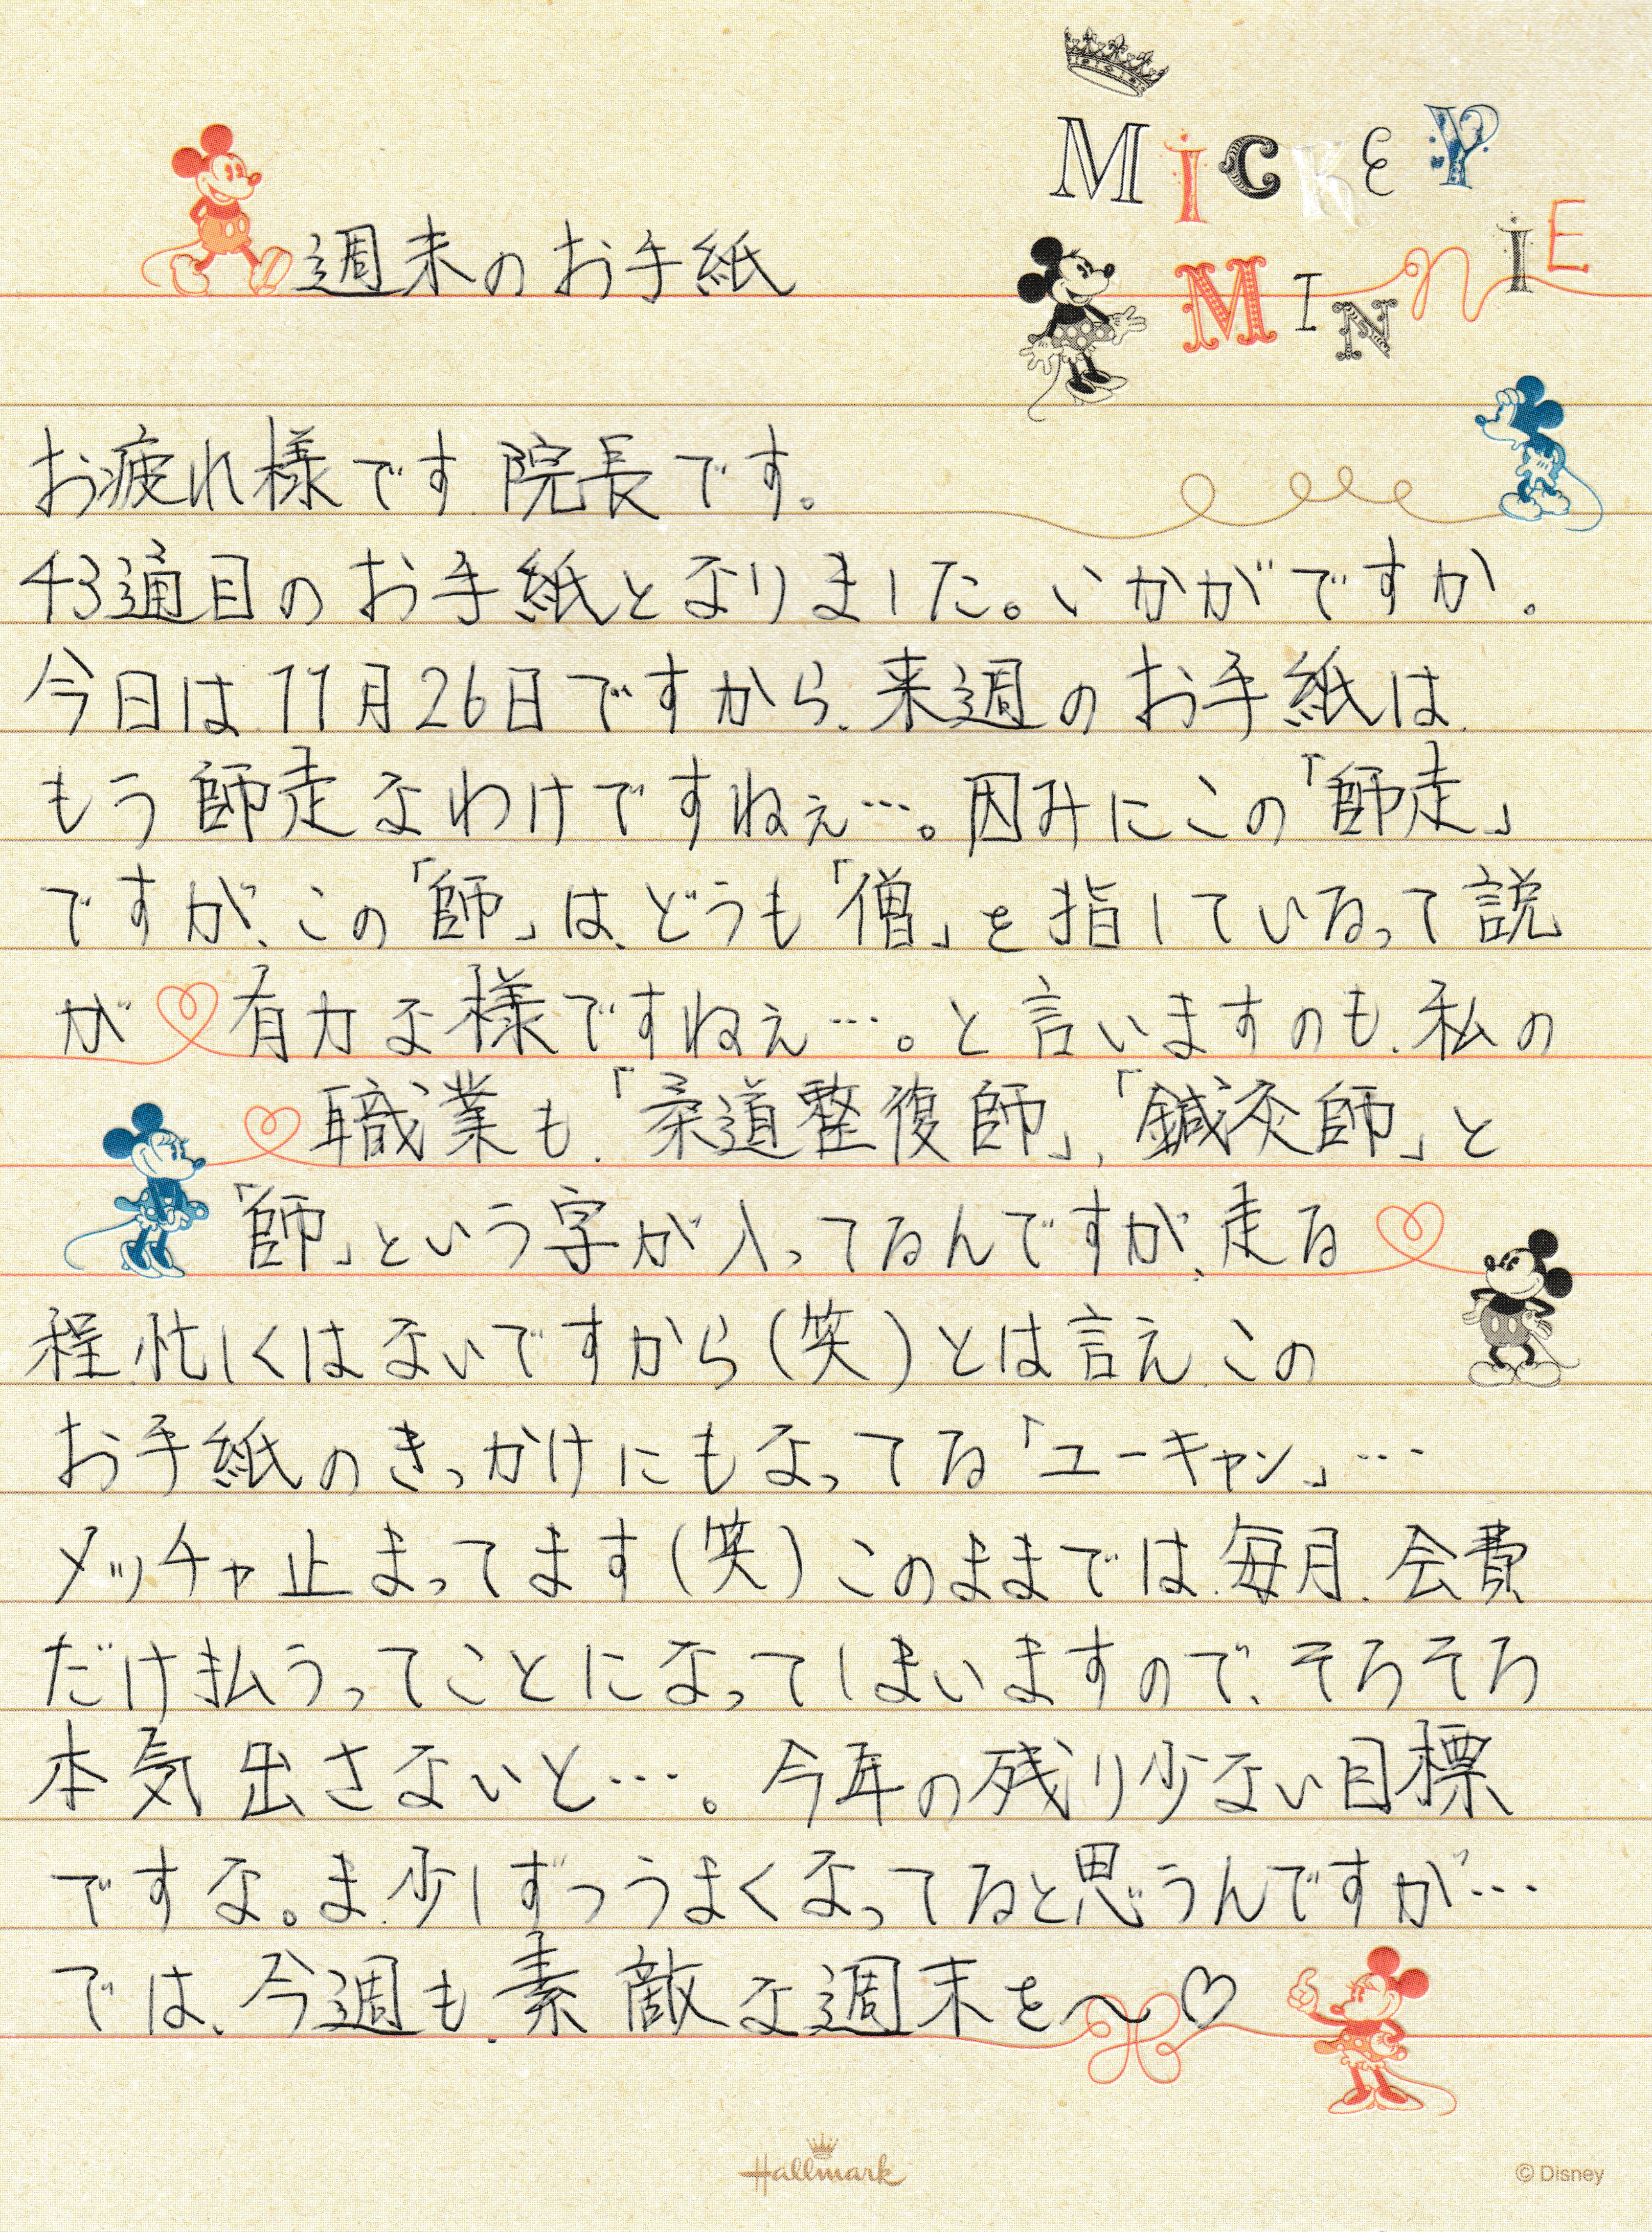 MICKEY
MINNIE
週末のお手紙
お疲れ様です 院長です。
43通目のお手紙となりました。いかがですか。
今日は、11月26日ですから、来週のお手紙は、
もう師走なわけですねぇ…。因みにこの「師走」
ですが、この「師」は、どうも「僧」を指しているって説
が有力な様ですねぇ…。と言いますのも、私の
職業も、「柔道整復師」、「鍼灸師」と
「師」という字が入ってるんですが、走る
程、忙しくはないですから(笑)とは言え、この
お手紙のきっかけにもなってる「ユーキャン」…
メッチャ止まってます(笑)このままでは、毎月、会費
だけ払うってことになってしまいますので、そろそろ
本気出さないと…。今年の残り少ない目標
ですな。ま、少しずつうまくなってると思うんですが…
では、今週も、素敵な週末を〜♡
Hallmark
© Disney